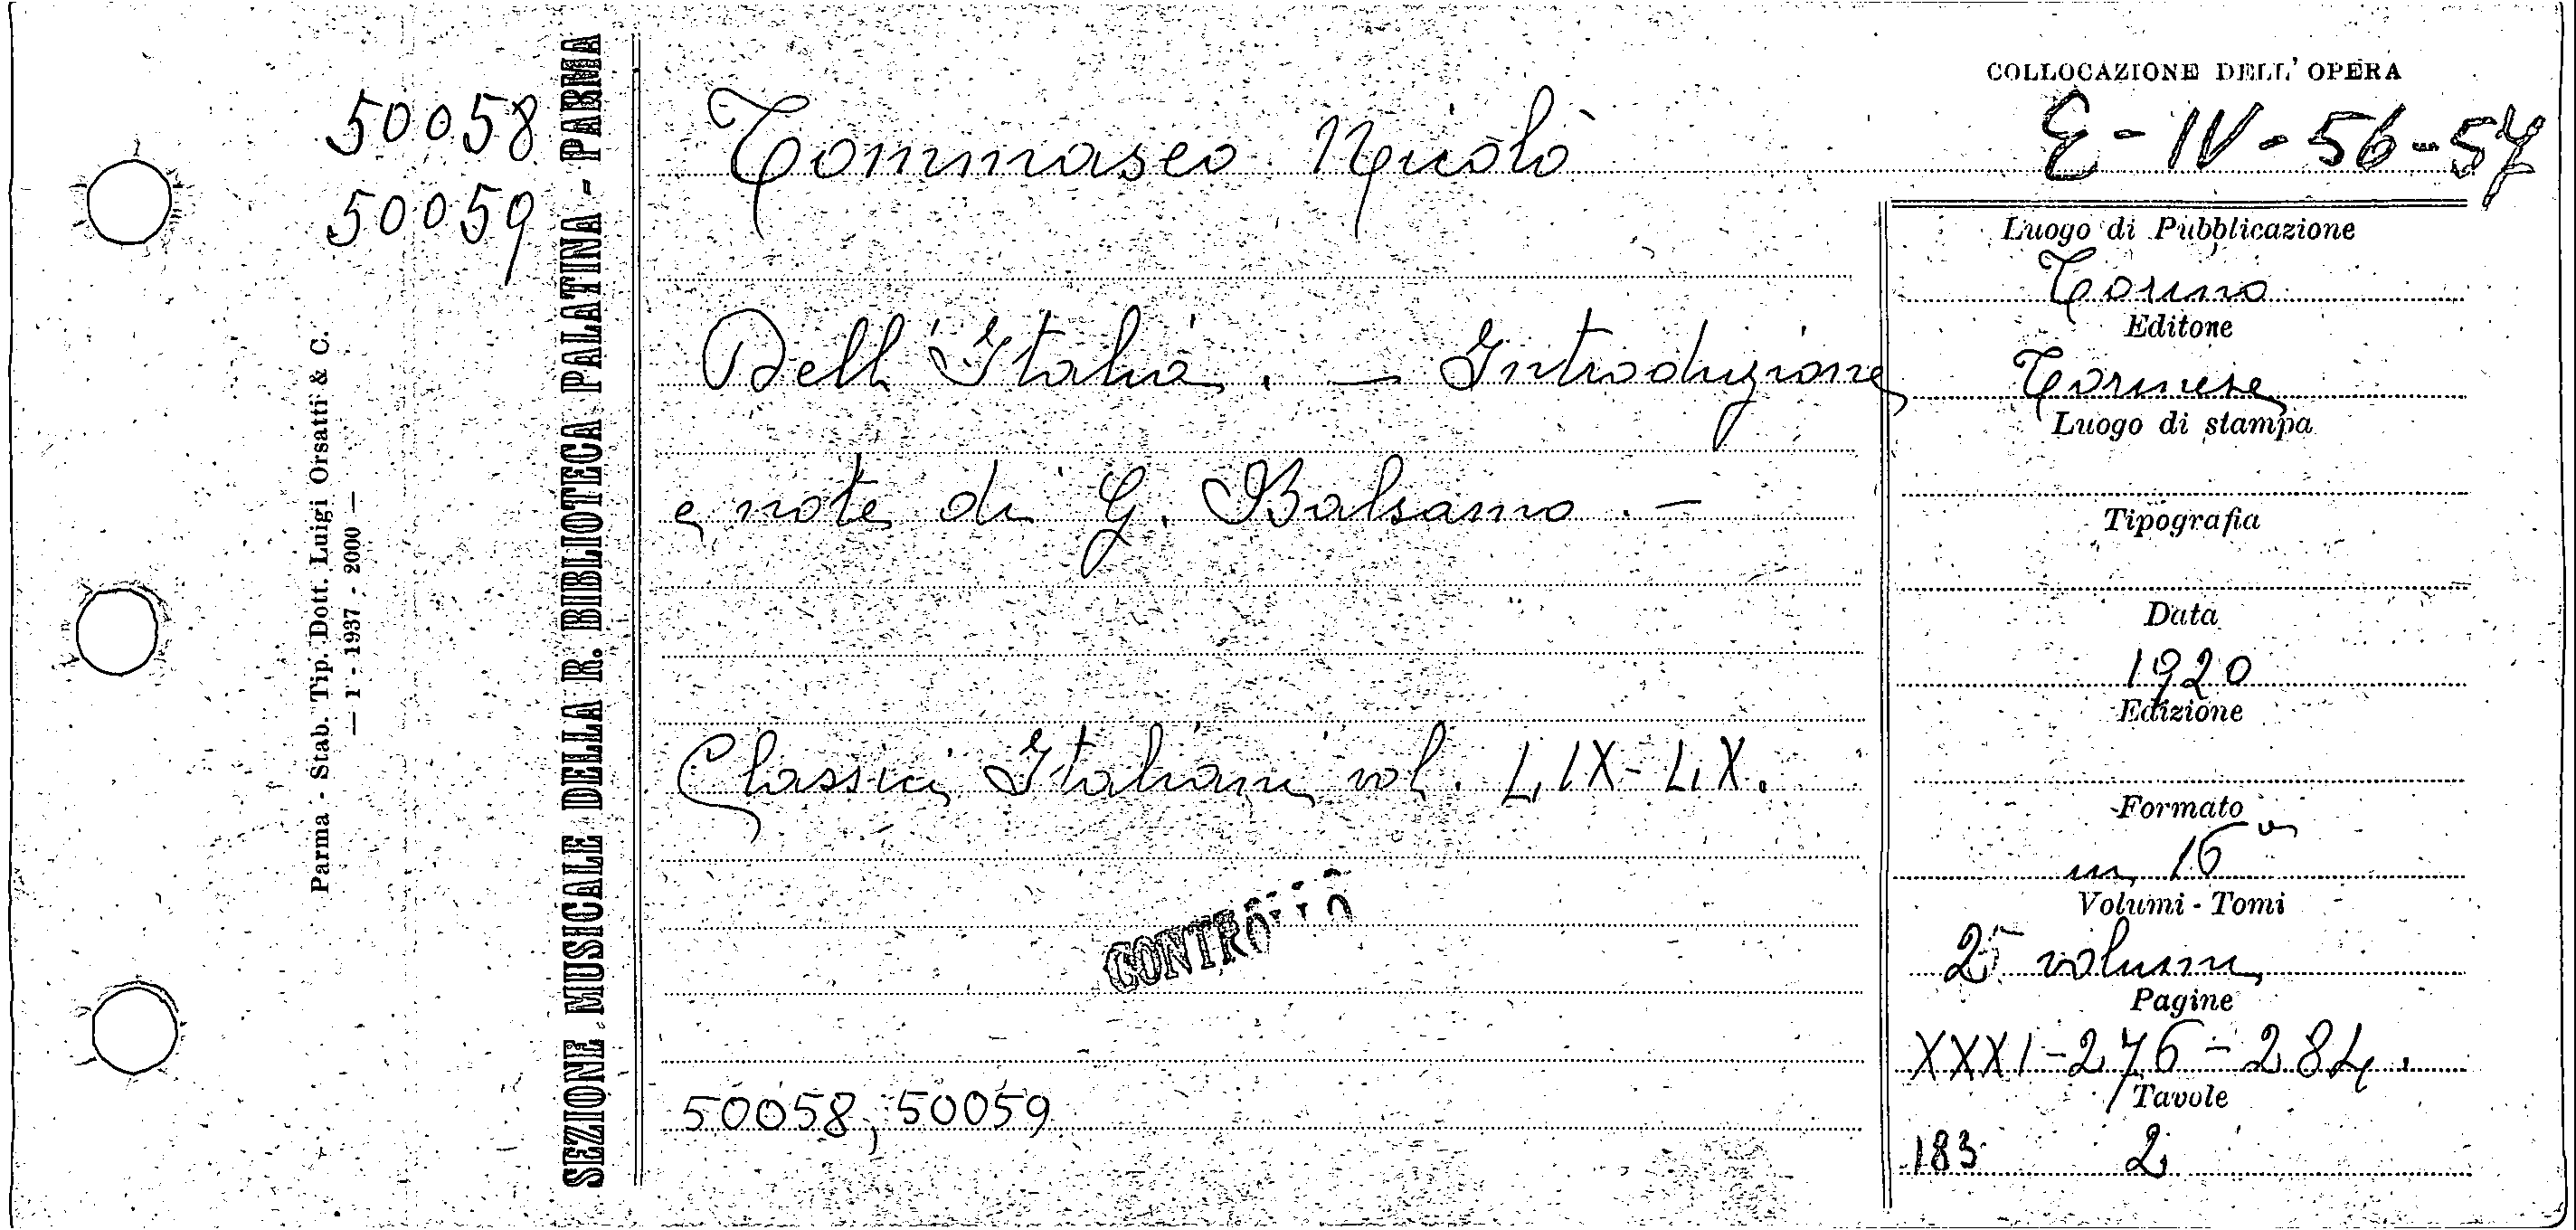 50058
50059
Parma - Stab. Tip. Dott. Luigi Orsatti & C.
— 1 - 1937 - 2000 —
SEZIONE MUSICALE DELLA R. BIBLIOTECA PALATINA - PARMA
Tommaseo Nicolò
Dell'Italia. — Introduzione
e note di G. Balsamo. —
Classici Italiani vol. LIX-LX.
CONTROLLO
50058, 50059
COLLOCAZIONE DELL'OPERA
E - IV - 56 - 57
Luogo di Pubblicazione
Torino
Editore
Torinese
Luogo di stampa
Tipografia
Data
1920
Edizione
Formato
in 16
Volumi - Tomi
2 volumi
Pagine
XXXI-276-284.
Tavole
183 2